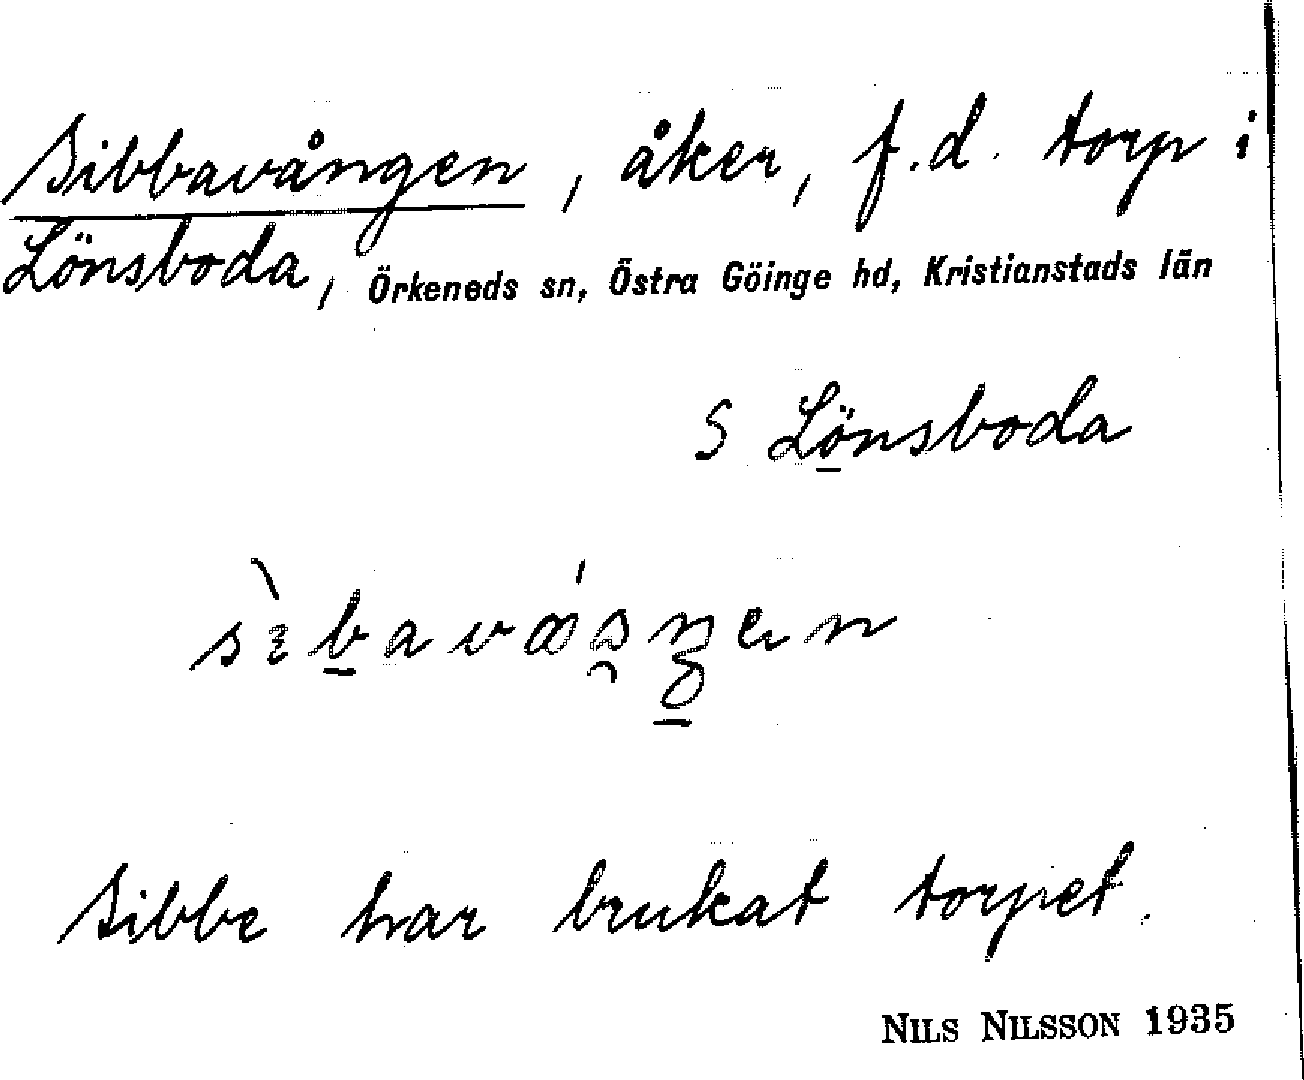 Sibbavången, åker, f.d. torp i
Lönsboda, Örkeneds sn, Östra Göinge hd, Kristianstads län
S Lönsboda
Sibbe har brukat torpet.
NILS NILSSON 1935